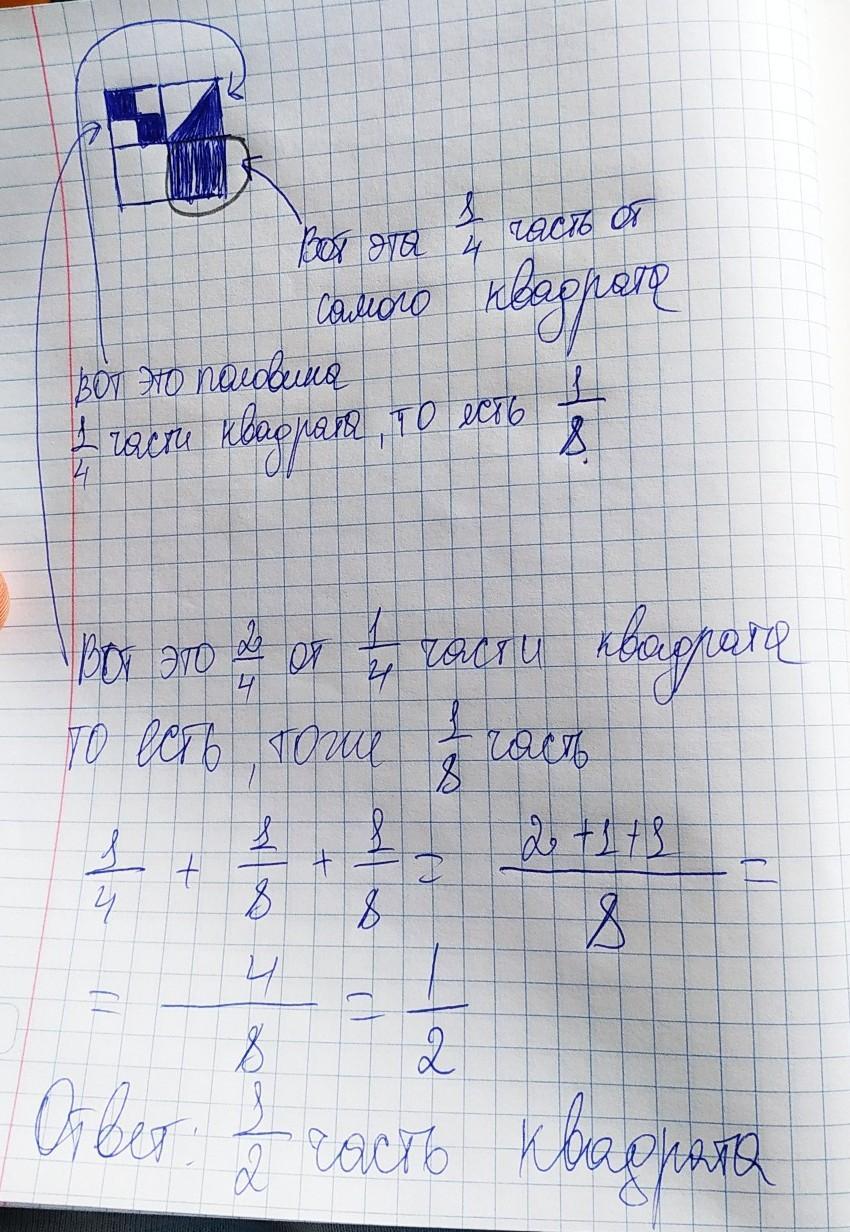 Вот эта 1/4 часть от
самого квадрата
вот это половина
1/4 части квадрата, то есть 1/8.
Вот это 2/4 от 1/4 части квадрата
то есть, тоже 1/8 часть
1/4 + 1/8 + 1/8 = (2+1+1)/8 =
= 4/8 = 1/2
Ответ: 1/2 часть квадрата